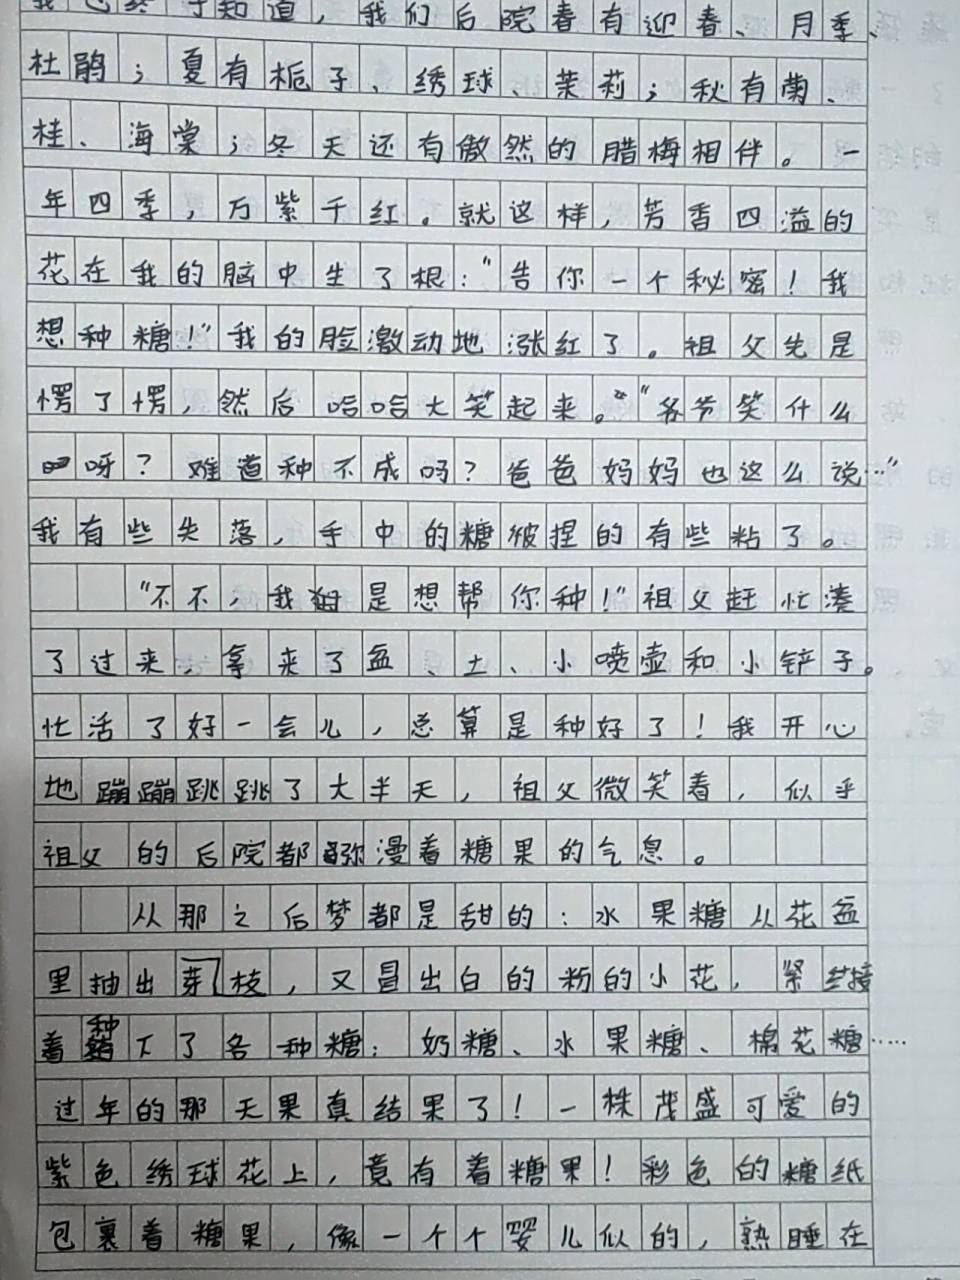 我也终于知道，我们后院春有迎春、月季、
杜鹃；夏有栀子、绣球、茉莉；秋有菊、
桂、海棠；冬天还有傲然的腊梅相伴。一
年四季，万紫千红。就这样，芳香四溢的
花在我的脑中生了根："告你一个秘密！我
想种糖！"我的脸激动地涨红了。祖父先是
愣了愣，然后哈哈大笑起来。"爷爷笑什么
呀？难道种不成吗？爸爸妈妈也这么说…"
我有些失落，手中的糖被捏的有些粘了。
"不不，我是想帮你种！"祖父赶忙凑
了过来，拿来了盆、土、小喷壶和小铲子。
忙活了好一会儿，总算是种好了！我开心
地蹦蹦跳跳了大半天，祖父微笑着，似乎
祖父的后院都弥漫着糖果的气息。
从那之后梦都是甜的：水果糖从花盆
里抽出芽枝，又冒出白的粉的小花，紧接
着种下了各种糖：奶糖、水果糖、棉花糖……
过年的那天果真结果了！一株茂盛可爱的
紫色绣球花上，竟有着糖果！彩色的糖纸
包裹着糖果，像一个个婴儿似的，熟睡在